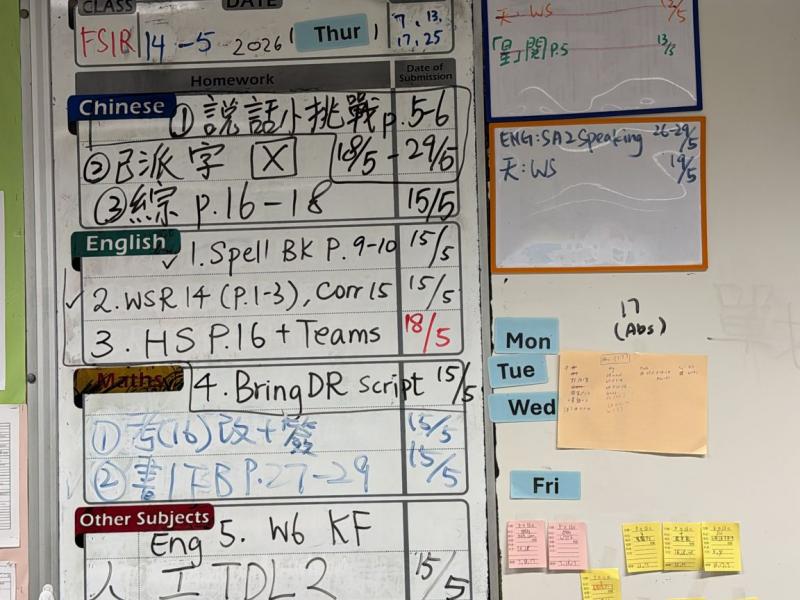 CLASS DATE
FS1R 14-5 2026 ( Thur ) 7, 13, 17, 25
Homework Date of Submission
Chinese ① 說話小挑戰 p.5-6
② 已派字 X 18/5-29/5
③ 綜 p.16-18 15/5
English
✓ 1. Spell BK P. 9-10 15/5
✓ 2. WSR14 (P.1-3), Corr 15 15/5
3. HS P.16 + Teams 18/5
Maths 4. Bring DR Script 15/5
① 考(16)改+簽 15/5
② 書1下B P.27-29 15/5
Other Subjects
Eng 5. W6 KF
人工 TDL2 15/5
天: WS 12/5
P.5 13/5
ENG: SA2 Speaking 26-29/5
天: WS 19/5
17
(Abs)
Mon
Tue
Wed
Fri